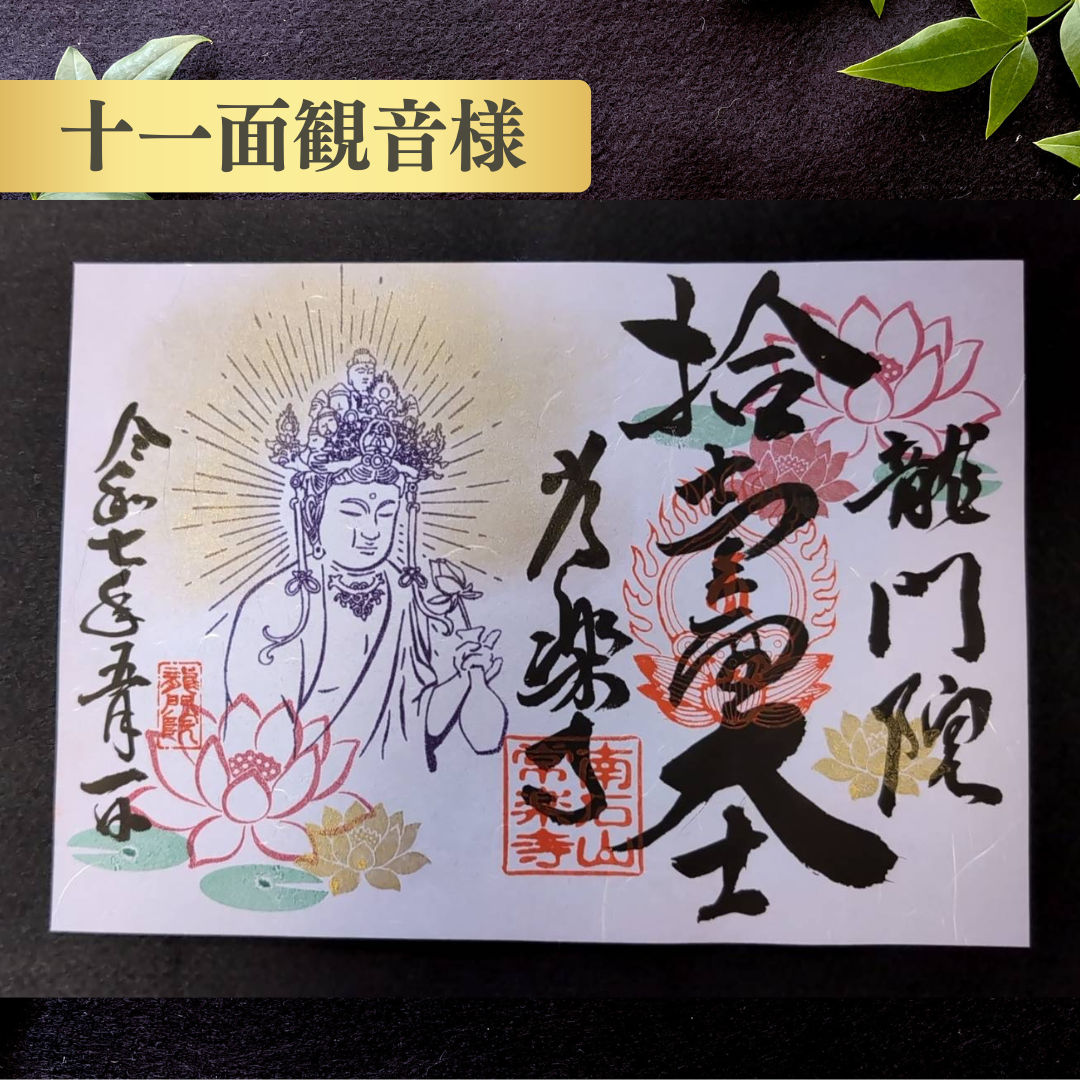 十一面観音様
龍門院
拾壹面大士
常楽寺
南石山
常楽寺
令和七年五月一日
龍門院